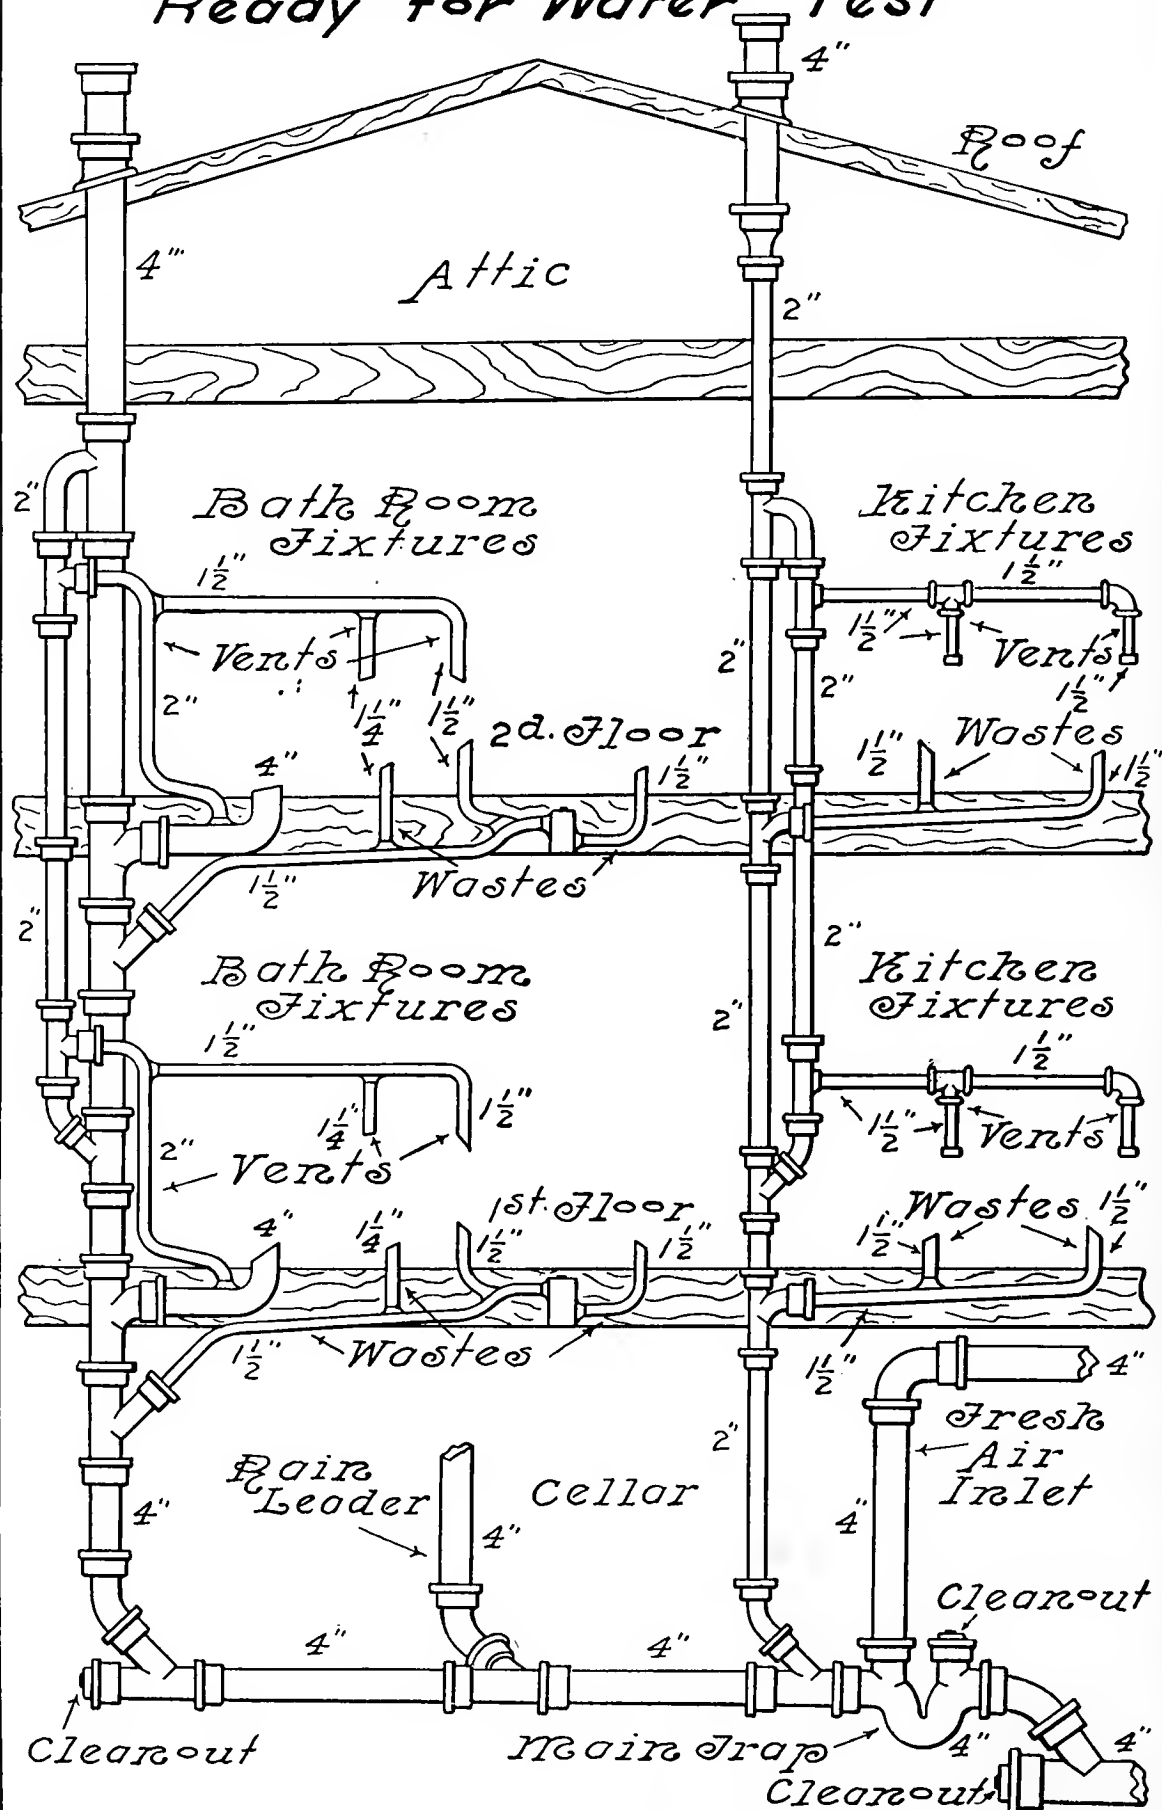 Ready for Water Test
4"
Roof
4'"
Attic
2"
2"
Bath Room
Fixtures
Kitchen
Fixtures
1 1/2"
1 1/2"
1 1/2"
Vents
Vents
2"
2"
2"
1 1/4"
1 1/2"
1 1/2"
2d. Floor
Wastes
4"
1 1/2"
1 1/2"
1 1/2"
1 1/2"
Wastes
2"
2"
Bath Room
Fixtures
Kitchen
Fixtures
2"
1 1/2"
1 1/2"
1 1/4"
1 1/2"
1 1/2"
Vents
2"
Vents
1st. Floor
Wastes
1 1/2"
4"
1 1/4"
1 1/2"
1 1/2"
1 1/2"
1 1/2"
Wastes
1 1/2"
4"
Fresh
Air
Inlet
2"
Rain
Leader
Cellar
4"
4"
4"
Cleanout
4"
4"
Cleanout
Main Trap
4"
4"
Cleanout